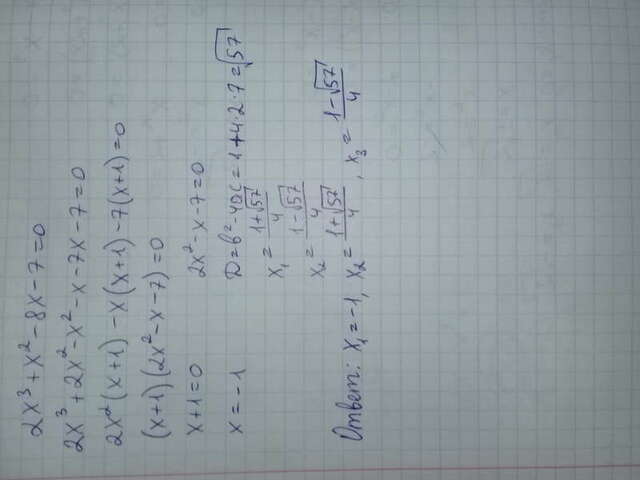 2x³ + x² - 8x - 7 = 0
2x³ + 2x² - x² - x - 7x - 7 = 0
2x²(x+1) - x(x+1) - 7(x+1) = 0
(x+1)(2x² - x - 7) = 0
x+1=0 2x² - x - 7 = 0
x = -1 D = b² - 4ac = 1+4·2·7 = √57
x₁ = (1+√57)/4
x₂ = (1-√57)/4
Ответ: x₁ = -1, x₂ = (1+√57)/4, x₃ = (1-√57)/4